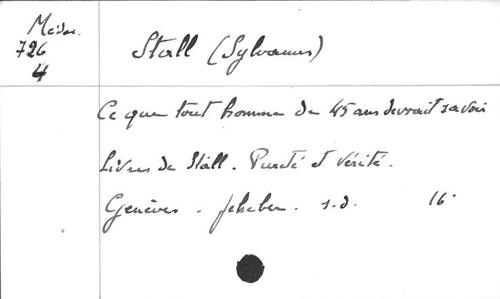 Méd.
726
4
Stall (Sylvanus)
Ce que tout homme de 45 ans devrait savoir
Livres de Stall. Pureté et Vérité.
Genève. Jeheber. s.d. 16°